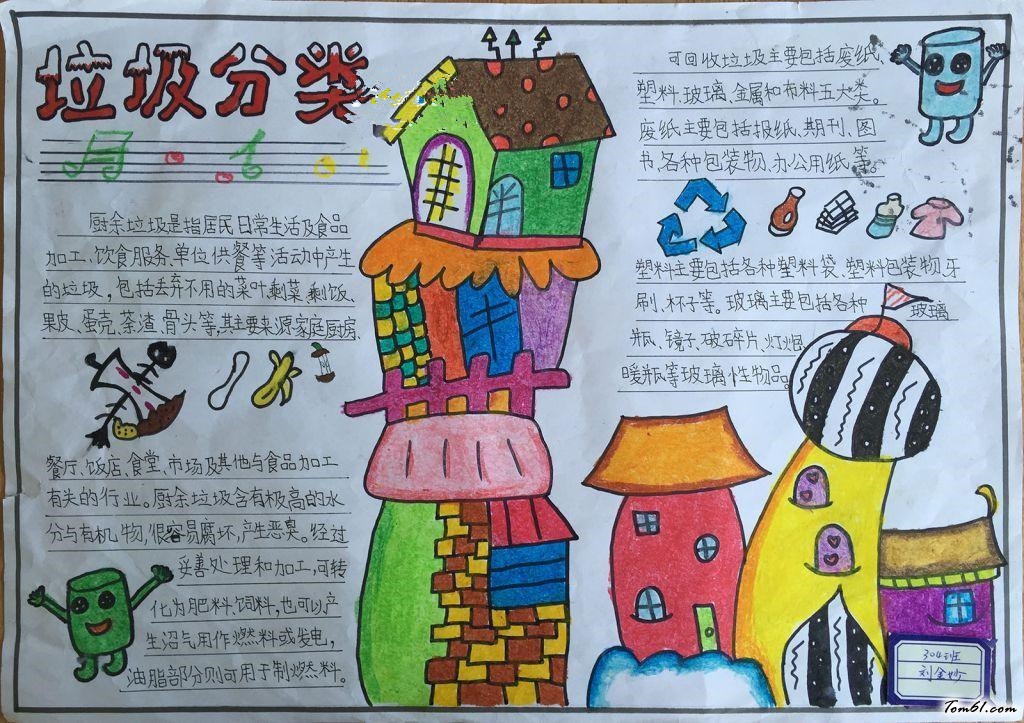 垃圾分类
厨余垃圾是指居民日常生活及食品
加工、饮食服务、单位供餐等活动中产生
的垃圾，包括丢弃不用的菜叶、剩菜、剩饭、
果皮、蛋壳、茶渣、骨头等，其主要来源家庭厨房、
餐厅、饭店、食堂、市场及其他与食品加工
有关的行业。厨余垃圾含有极高的水
分与有机物，很容易腐坏，产生恶臭。经过
妥善处理和加工，可转
化为肥料、饲料，也可以产
生沼气用作燃料或发电，
油脂部分则可用于制燃料。
可回收垃圾主要包括废纸、
塑料、玻璃、金属和布料五大类。
废纸主要包括报纸、期刊、图
书、各种包装物、办公用纸等。
塑料主要包括各种塑料袋、塑料包装物、牙
刷、杯子等。玻璃主要包括各种玻璃
瓶、镜子、破碎片、灯炮
暖瓶等玻璃性物品。
304班
刘金妙
Tom61.com